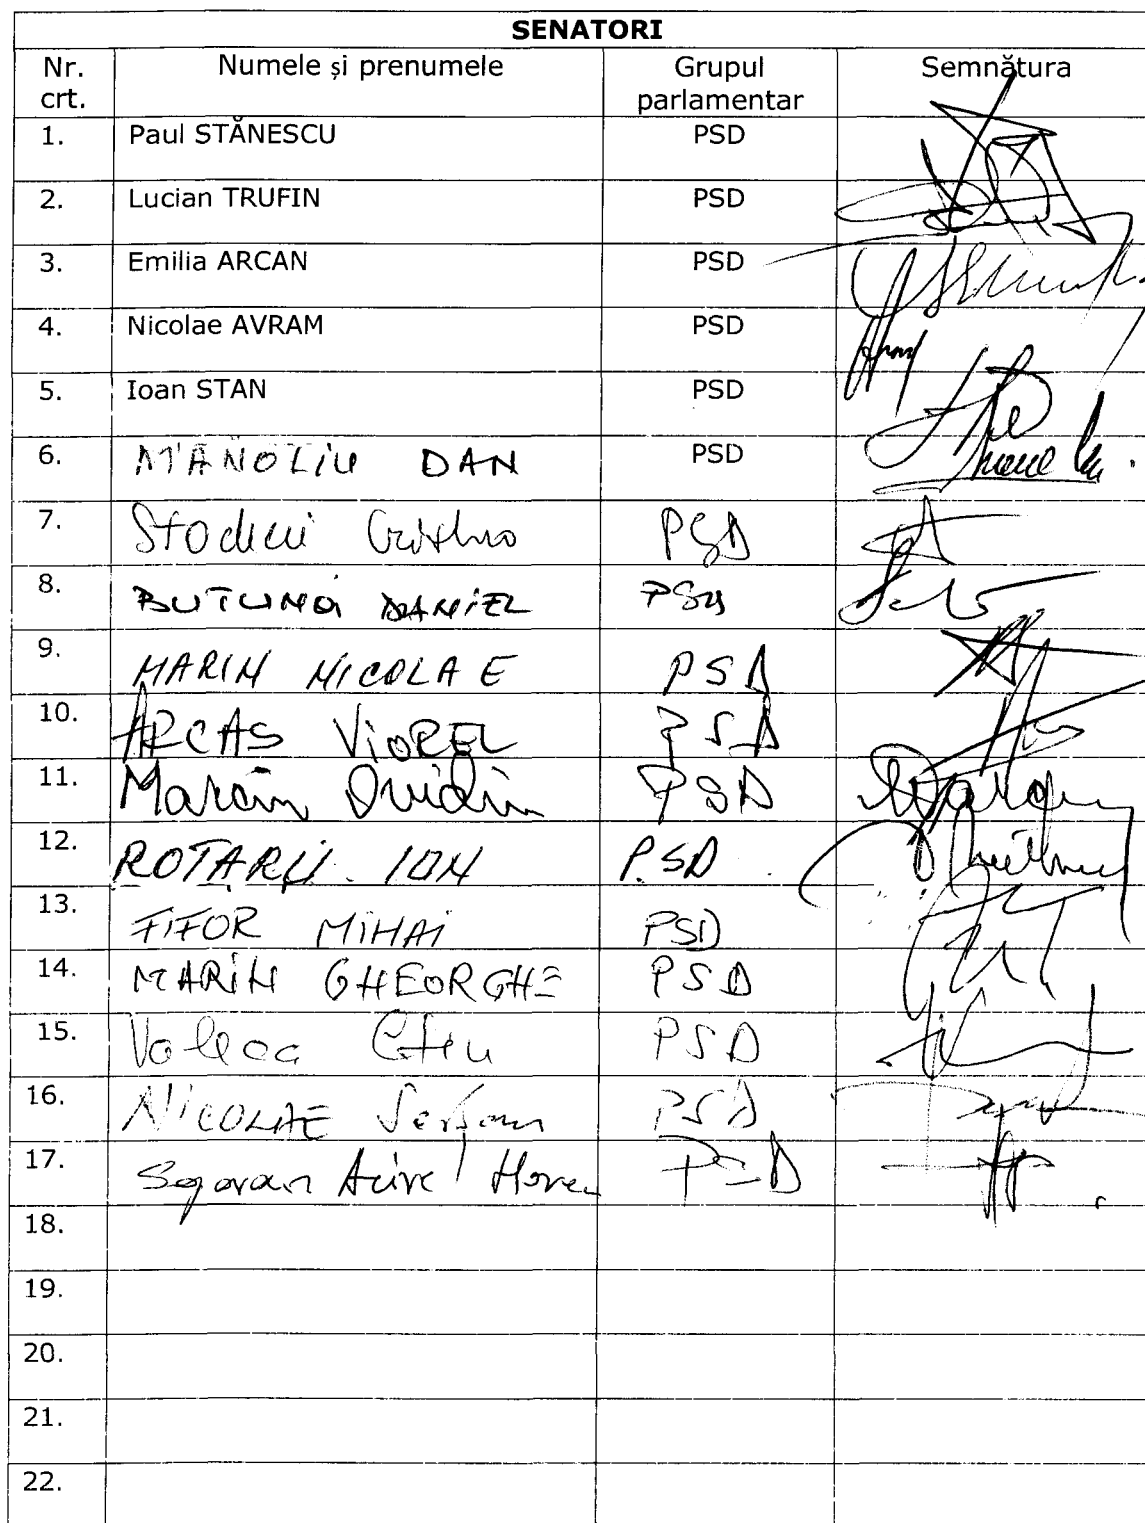 SENATORI
Nr. crt. Numele și prenumele Grupul parlamentar Semnătura
1. Paul STĂNESCU PSD
2. Lucian TRUFIN PSD
3. Emilia ARCAN PSD
4. Nicolae AVRAM PSD
5. Ioan STAN PSD
6. MANOLIU DAN PSD
7. PSD
8. DANIEL
9. MARIN NICOLAE PSD
10. ARCAS VIOREL PSD
11. Marin Ovidiu PSD
12. ROTARU ION PSD
13. FIFOR MIHAI PSD
14. MARIN GHEORGHE PSD
15. PSD
16. NICOLAE Serban PSD
17. PSD
18.
19.
20.
21.
22.